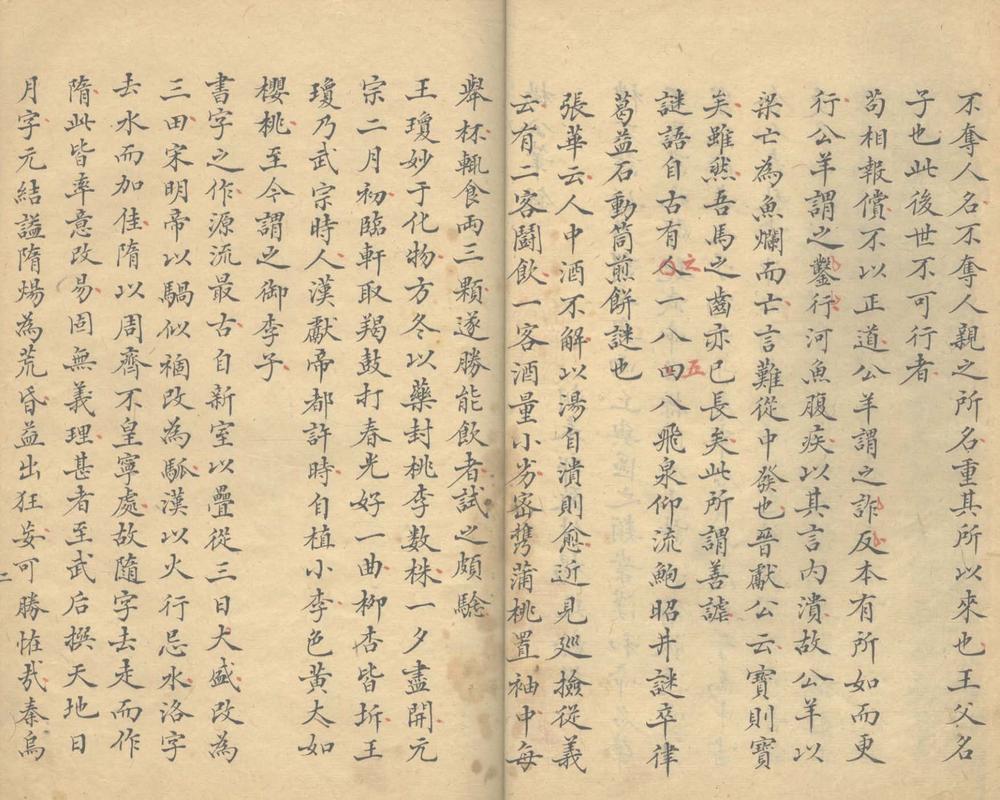 不奪人名不奪人親之所名重其所以來也王父名
子也此後世不可行者
苟相報償不以正道公羊謂之詐反本有所如而更
行公羊謂之鑿行河魚腹疾以其言內潰故公羊以
梁亡為魚爛而亡言難從中發也晉獻公云寶則寶
矣雖然吾馬之齒亦已長矣此所謂善謔
謎語自古有之一八五八飛泉仰流鮑昭井謎卒律
葛益石動筒煎餅謎也
張華云人中酒不解以湯自漬則愈近見巡撿從義
云有二客鬪飲一客酒量小劣密携蒲桃置袖中每
舉杯輒食兩三顆遂勝能飲者試之頗驗
王瓊妙于化物方冬以藥封桃李数株一夕盡開元
宗二月初臨軒取羯鼓打春光好一曲柳杏皆坼王
瓊乃武宗時人漢獻帝都許時自植小李色黃大如
櫻桃至今謂之御李子
書字之作源流最古自新室以疊從三日大盛改為
三田宋明帝以騧似禍改為䯄漢以火行忌水洛字
去水而加佳隋以周齊不皇寧處故隨字去走而作
隋此皆率意改易固無義理甚者至武后撰天地日
月字元結謚隋煬為荒昏益出狂妄可勝恠哉秦烏